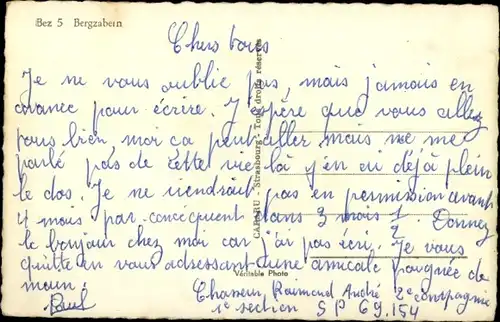 Bez 5 Bergzabern
Chers tous
Je ne vous oublie pas, mais jamais en
avance pour écrire. J'espère que vous allez
tous bien, moi ca peut aller, mais ne me
parlé pas de cette vie là j'en ai déjà plein
le dos. Je ne viendrait pas en permission avant
4 mois par-concequent dans 3 mois 1/2. Donnez
le bonjour chez moi car j'ai pas écri. Je vous
quitte en vous adressant une amicale pougnée de
main.
Paul
Chasseur Raimond André 2e compagnie
1e section SP 69.154
CAP-RU - Strasbourg - Tous droits réservés
Véritable Photo